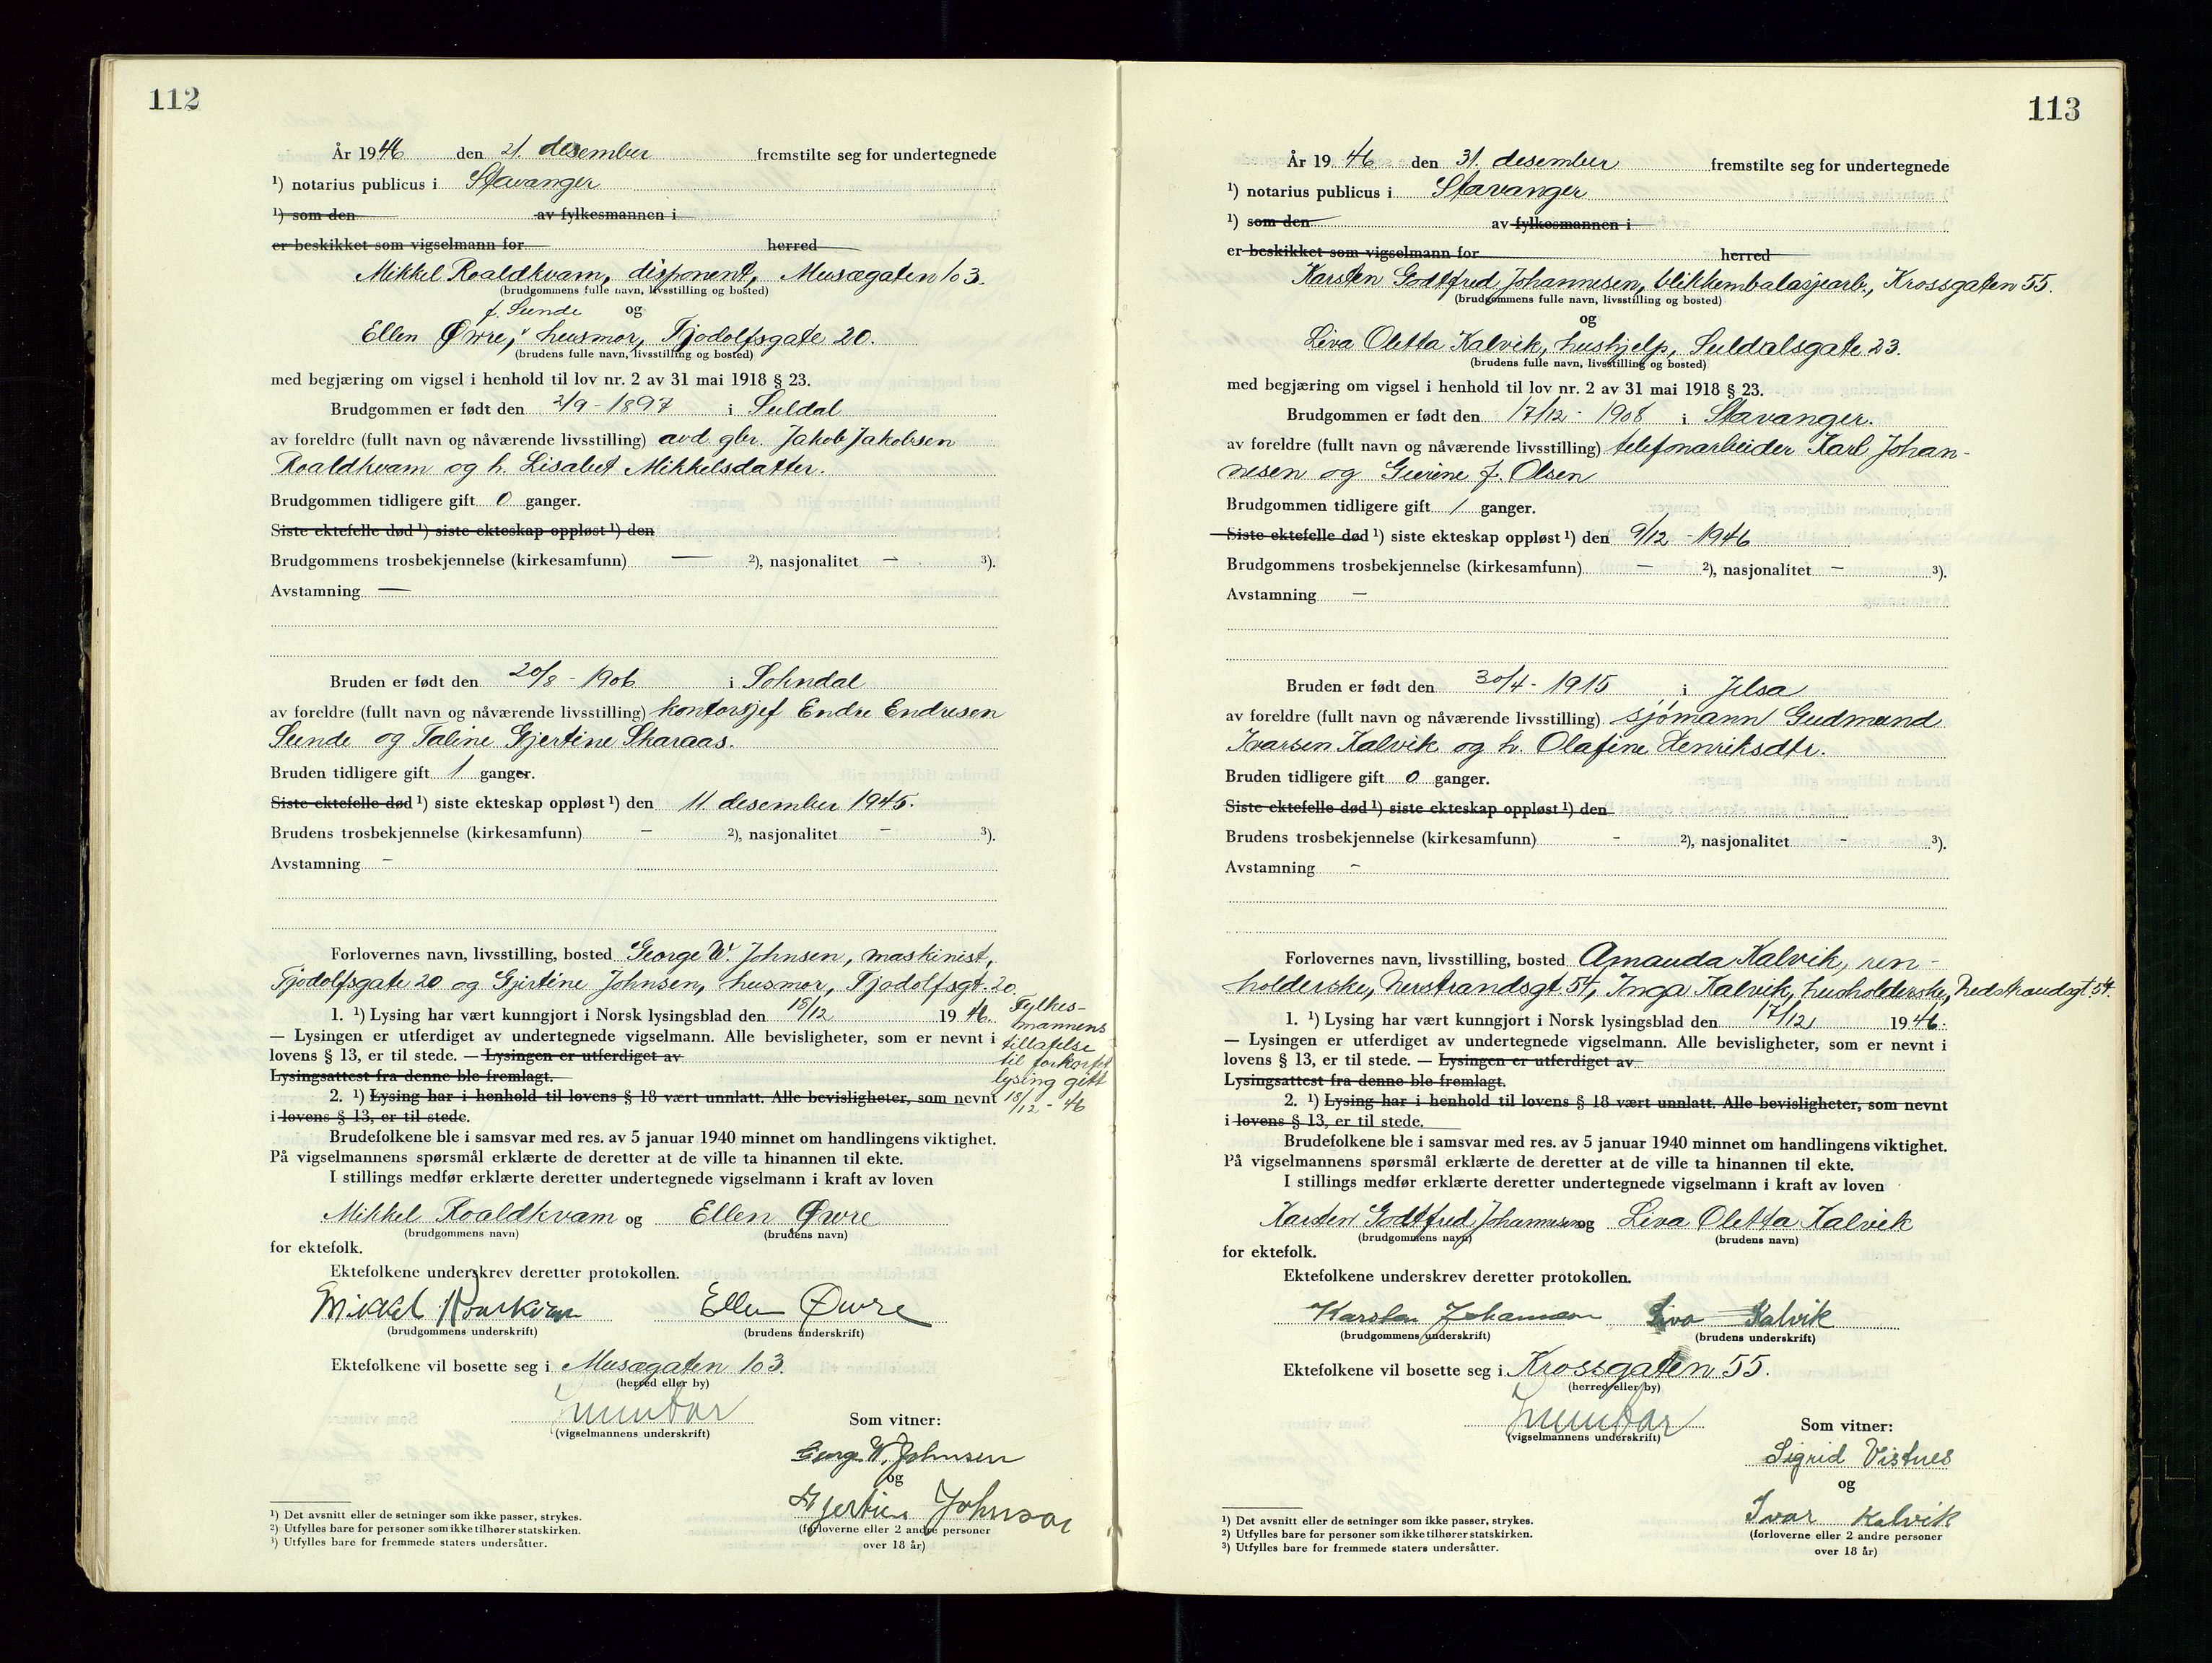 112
År 1946 den 21. desember fremstilte seg for undertegnede
¹) notarius publicus i Stavanger
¹) som den av fylkesmannen i
er beskikket som vigselmann for herred
Mikkel Roaldkvam, disponent, Musægaten 103.
(brudgommens fulle navn, livsstilling og bosted)
f. Sunde og
Ellen Øwre, husmor, Tjodolfsgate 20.
(brudens fulle navn, livsstilling og bosted)
med begjæring om vigsel i henhold til lov nr. 2 av 31 mai 1918 § 23.
Brudgommen er født den 2/9 - 1897 i Suldal
av foreldre (fullt navn og nåværende livsstilling) avd. gbr. Jakob Jakobsen
Roaldkvam og h. Lisabet Mikkelsdatter.
Brudgommen tidligere gift 0 ganger.
Siste ektefelle død ¹) siste ekteskap oppløst ¹) den
Brudgommens trosbekjennelse (kirkesamfunn) — ²), nasjonalitet — ³).
Avstamning —
Bruden er født den 20/8 - 1906 i Sohndal
av foreldre (fullt navn og nåværende livsstilling) kontorsjef Endre Endresen
Sunde og Taline Gjertine Skaraas.
Bruden tidligere gift 1 ganger.
Siste ektefelle død ¹) siste ekteskap oppløst ¹) den 11. desember 1945.
Brudens trosbekjennelse (kirkesamfunn) - ²), nasjonalitet - ³).
Avstamning -
Forlovernes navn, livsstilling, bosted George W. Johnsen, maskinist,
Tjodolfsgate 20 og Gjertine Johnsen, husmor, Tjodolfsgt. 20
1. ¹) Lysing har vært kunngjort i Norsk lysingsblad den 18/12 1946.
— Lysingen er utferdiget av undertegnede vigselmann. Alle bevisligheter, som er nevnt i
lovens § 13, er til stede. — Lysingen er utferdiget av
Lysingsattest fra denne ble fremlagt.
2. ¹) Lysing har i henhold til lovens § 18 vært unnlatt. Alle bevisligheter, som nevnt
i lovens § 13, er til stede.
Fylkes-
mannens
tillatelse
til forkortet
lysing gitt
18/12 - 46
Brudefolkene ble i samsvar med res. av 5 januar 1940 minnet om handlingens viktighet.
På vigselmannens spørsmål erklærte de deretter at de ville ta hinannen til ekte.
I stillings medfør erklærte deretter undertegnede vigselmann i kraft av loven
Mikkel Roaldkvam og Ellen Øwre
(brudgommens navn) (brudens navn)
for ektefolk.
Ektefolkene underskrev deretter protokollen.
Mikkel Roaldkvam Ellen Øwre
(brudgommens underskrift) (brudens underskrift)
Ektefolkene vil bosette seg i Musægaten 103.
(herred eller by)
(vigselmannens underskrift)
Som vitner:
George W. Johnsen
og
Gjertine Johnsen
(forloverne eller 2 andre personer
over 18 år)
¹) Det avsnitt eller de setninger som ikke passer, strykes.
²) Utfylles bare for personer som ikke tilhører statskirken.
³) Utfylles bare for fremmede staters undersåtter.
113
År 1946 den 31. desember fremstilte seg for undertegnede
¹) notarius publicus i Stavanger
¹) som den av fylkesmannen i
er beskikket som vigselmann for herred
Karsten Godtfred Johannesen, blikkemballasjearb., Krossgaten 55.
(brudgommens fulle navn, livsstilling og bosted)
og
Liva Oletta Kalvik, hushjelp, Suldalsgate 23.
(brudens fulle navn, livsstilling og bosted)
med begjæring om vigsel i henhold til lov nr. 2 av 31 mai 1918 § 23.
Brudgommen er født den 17/12 - 1908 i Stavanger.
av foreldre (fullt navn og nåværende livsstilling) telefonarbeider Karl Johan-
nesen og Gurine f. Olsen
Brudgommen tidligere gift 1 ganger.
Siste ektefelle død ¹) siste ekteskap oppløst ¹) den 9/12 - 1946
Brudgommens trosbekjennelse (kirkesamfunn) — ²), nasjonalitet — ³).
Avstamning —
Bruden er født den 30/4 - 1915 i Jelsa
av foreldre (fullt navn og nåværende livsstilling) sjømann Gudmund
Ivarsen Kalvik og h. Olafine Henriksdtr.
Bruden tidligere gift 0 ganger.
Siste ektefelle død ¹) siste ekteskap oppløst ¹) den
Brudens trosbekjennelse (kirkesamfunn) - ²), nasjonalitet - ³).
Avstamning -
Forlovernes navn, livsstilling, bosted Amanda Kalvik, ren-
holderske, Nerstrandsgt. 54, Inga Kalvik, husholderske, Nedstrandsgt. 54.
1. ¹) Lysing har vært kunngjort i Norsk lysingsblad den 17/12 1946.
— Lysingen er utferdiget av undertegnede vigselmann. Alle bevisligheter, som er nevnt i
lovens § 13, er til stede. — Lysingen er utferdiget av
Lysingsattest fra denne ble fremlagt.
2. ¹) Lysing har i henhold til lovens § 18 vært unnlatt. Alle bevisligheter, som nevnt
i lovens § 13, er til stede.
Brudefolkene ble i samsvar med res. av 5 januar 1940 minnet om handlingens viktighet.
På vigselmannens spørsmål erklærte de deretter at de ville ta hinannen til ekte.
I stillings medfør erklærte deretter undertegnede vigselmann i kraft av loven
Karsten Godtfred Johannesen og Liva Oletta Kalvik
(brudgommens navn) (brudens navn)
for ektefolk.
Ektefolkene underskrev deretter protokollen.
Karsten Johannesen Liva Kalvik
(brudgommens underskrift) (brudens underskrift)
Ektefolkene vil bosette seg i Krossgaten 55.
(herred eller by)
(vigselmannens underskrift)
Som vitner:
Sigrid Vistnes
og
Ivar Kalvik
(forloverne eller 2 andre personer
over 18 år)
¹) Det avsnitt eller de setninger som ikke passer, strykes.
²) Utfylles bare for personer som ikke tilhører statskirken.
³) Utfylles bare for fremmede staters undersåtter.